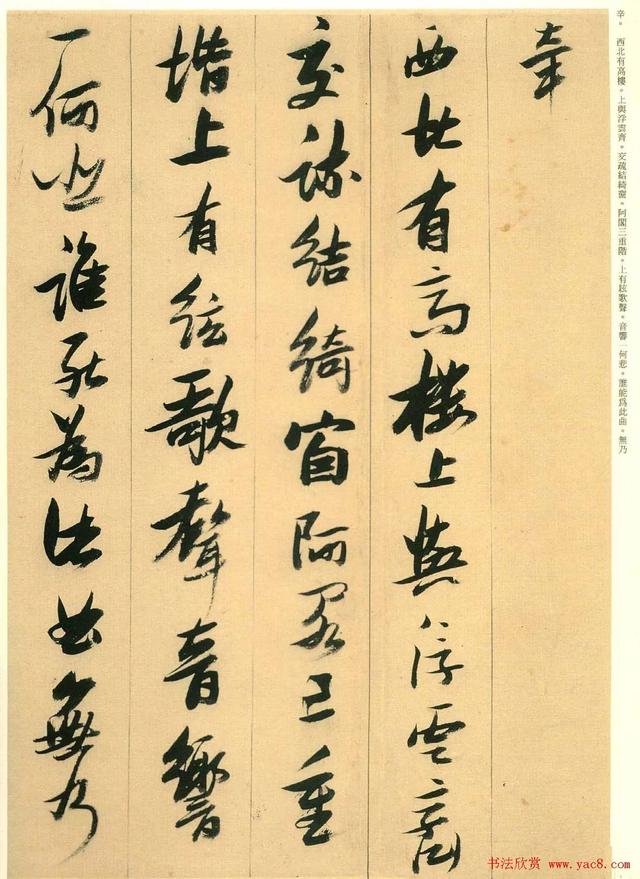 辛
西北有高樓上與浮雲齊
交疏結綺窗阿閣三重
階上有絃歌聲音響
一何悲誰能為此曲無乃
辛。西北有高樓。上與浮雲齊。交疏結綺窗。阿閣三重階。上有絃歌聲。音響一何悲。誰能為此曲。無乃
书法欣赏 www.yac8.com